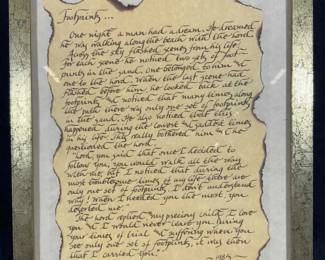 Footprints...
One night a man had a dream. He dreamed
he was walking along the beach with the Lord.
Across the sky flashed scenes from his life.
For each scene he noticed two sets of foot-
prints in the sand. One belonged to him &
one to the Lord. When the last scene had
flashed before him, he looked back at the
footprints & noticed that many times along
the path there was only one set of footprints
in the sand. He also noticed that this
happened during the lowest & saddest times
in his life. This really bothered him & he
questioned the Lord.
"Lord, you said that once I decided to
follow you, you would walk all the way
with me, but I noticed that during the
most troublesome times of my life there are
only one set of footprints. I don't understand
why? When I needed you the most, you
deserted me."
The Lord replied "My precious child, I love
you & I would never leave you. During
your times of trial & suffering when you
see only one set of footprints, it was then
that I carried you."